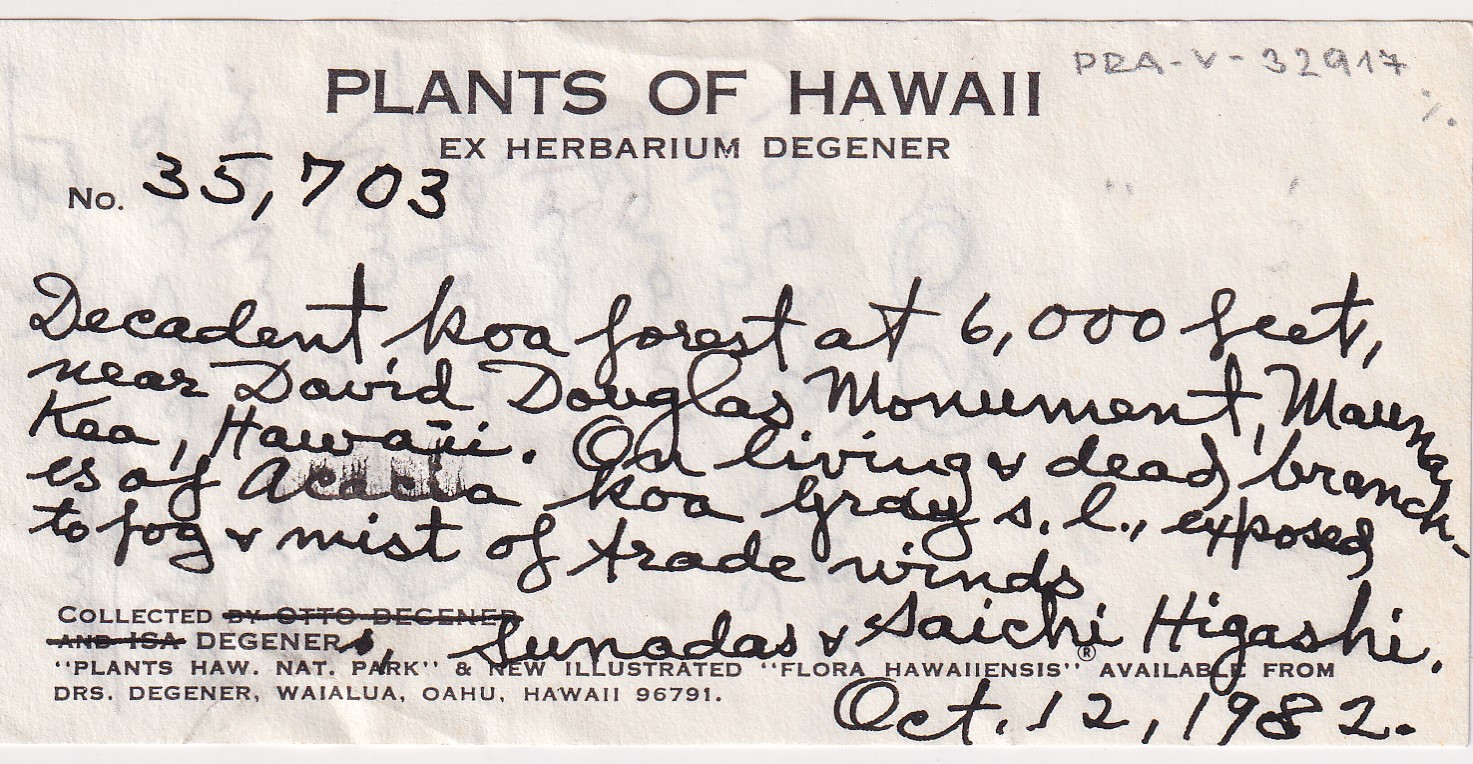 PRA-V-32917
PLANTS OF HAWAII
EX HERBARIUM DEGENER
No. 35,703
Decadent koa forest at 6,000 feet,
near David Douglas Monument, Mauna
Kea, Hawaii. On living & dead branch-
es of Acacia koa Gray s. l., exposed
to fog & mist of trade winds
COLLECTED BY OTTO DEGENER
AND ISA DEGENERs, Sunadas & Saichi Higashi.
"PLANTS HAW. NAT. PARK" & NEW ILLUSTRATED "FLORA HAWAIIENSIS"® AVAILABLE FROM
DRS. DEGENER, WAIALUA, OAHU, HAWAII 96791.
Oct. 12, 1982.